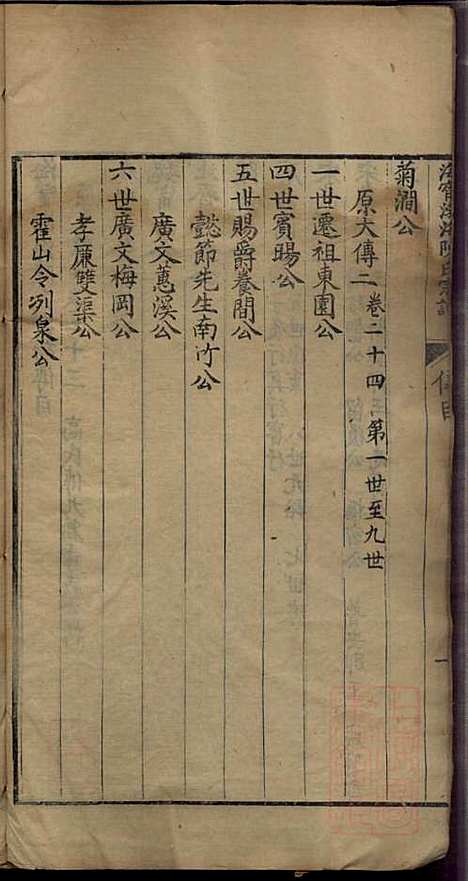 海寧渤海陳氏宗譜
傳目
一
菊澗公
原大傳二 卷二十四 第一世至九世
一世遷祖東園公
四世賓暘公
五世賜爵養閒公
懿節先生南竹公
廣文蕙溪公
六世廣文梅岡公
孝廉雙渠公
霍山令冽泉公